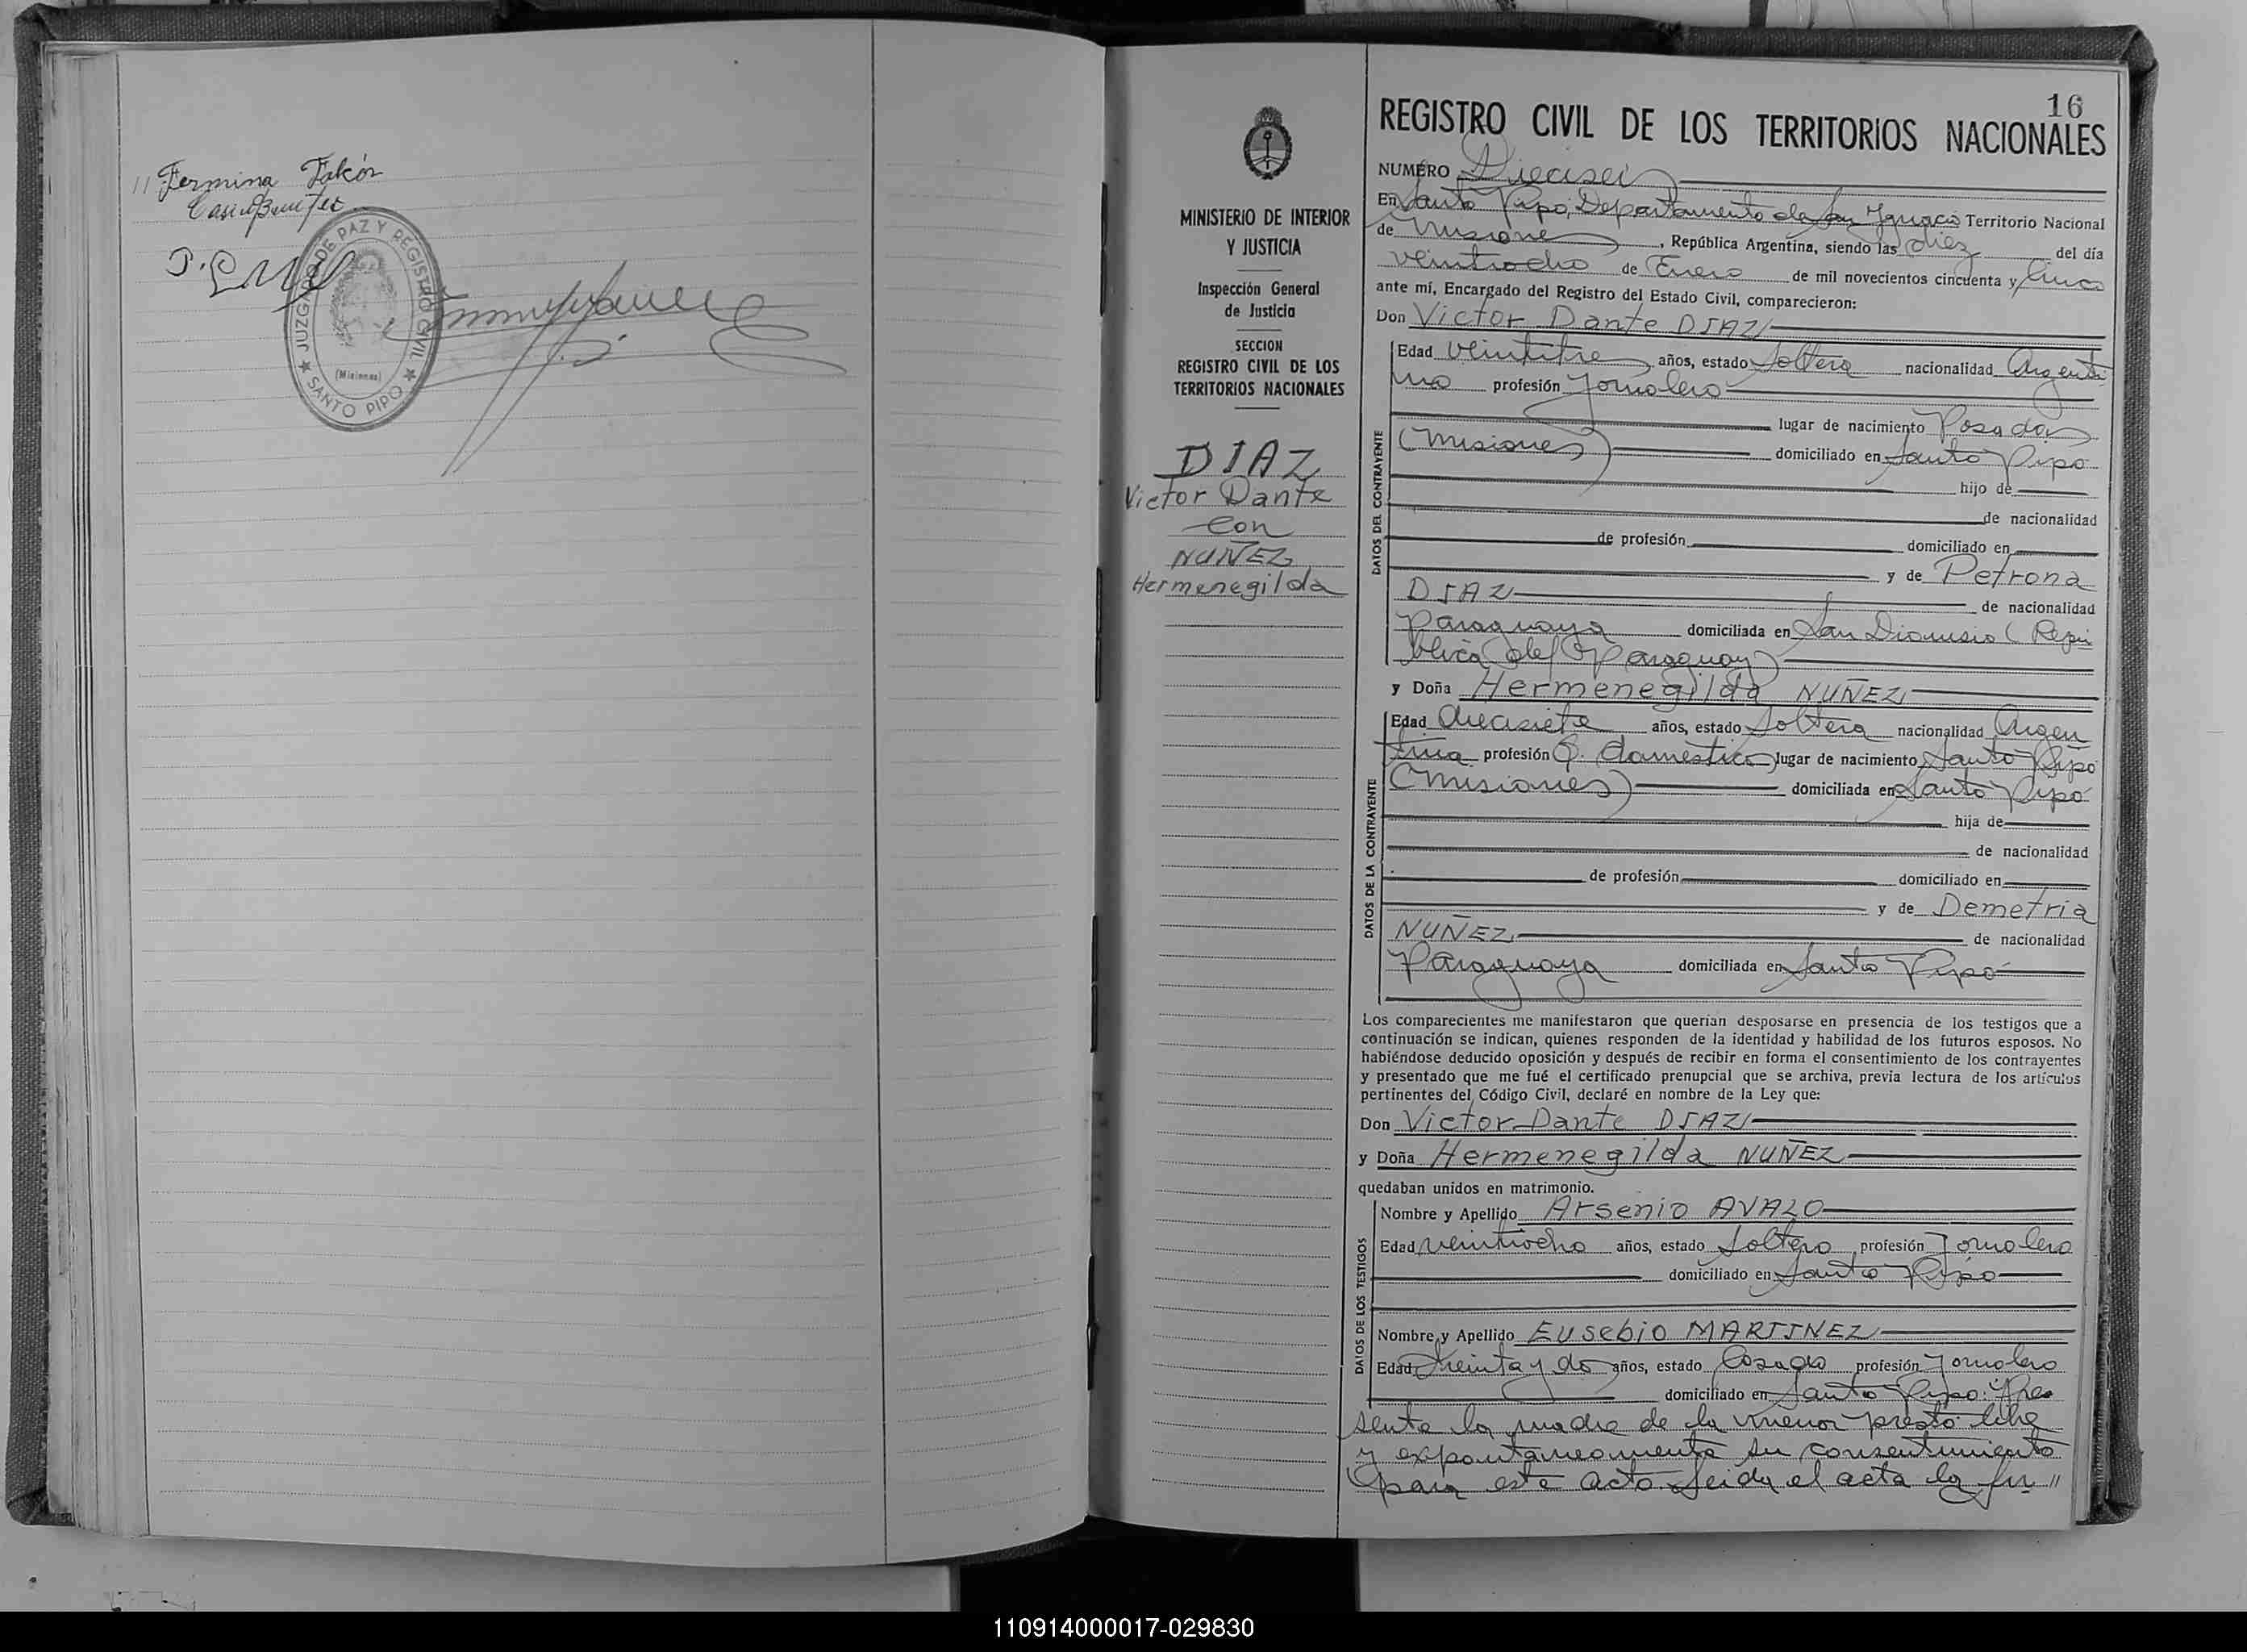 // Fermina Falcón
JUZGADO DE PAZ Y REGISTRO CIVIL
(Misiones)
★ SANTO PIPO ★
MINISTERIO DE INTERIOR
Y JUSTICIA
Inspección General
de Justicia
SECCION
REGISTRO CIVIL DE LOS
TERRITORIOS NACIONALES
DIAZ
Victor Dante
con
NUÑEZ
Hermenegilda
16
REGISTRO CIVIL DE LOS TERRITORIOS NACIONALES
NUMERO Dieciseis
En Santo Pipo, Departamento de San Ignacio Territorio Nacional
de Misiones, República Argentina, siendo las diez del día
veintiocho de Enero de mil novecientos cincuenta y cinco
ante mí, Encargado del Registro del Estado Civil, comparecieron:
Don Victor Dante DIAZ
DATOS DEL CONTRAYENTE
Edad veintitres años, estado Soltero nacionalidad Argenti
no profesión Jornalero
lugar de nacimiento Posadas
(Misiones) domiciliado en Santo Pipó
hijo de
de nacionalidad
de profesión domiciliado en
y de Petrona
DIAZ de nacionalidad
Paraguaya domiciliada en San Dionisio (Repú
blica del Paraguay)
y Doña Hermenegilda NUÑEZ
DATOS DE LA CONTRAYENTE
Edad diecisiete años, estado Soltera nacionalidad Argen
tina profesión Q. domésticos lugar de nacimiento Santo Pipó
(Misiones) domiciliada en Santo Pipó
hija de
de nacionalidad
de profesión domiciliado en
y de Demetria
NUÑEZ de nacionalidad
Paraguaya domiciliada en Santo Pipó
Los comparecientes me manifestaron que querían desposarse en presencia de los testigos que a
continuación se indican, quienes responden de la identidad y habilidad de los futuros esposos. No
habiéndose deducido oposición y después de recibir en forma el consentimiento de los contrayentes
y presentado que me fué el certificado prenupcial que se archiva, previa lectura de los artículos
pertinentes del Código Civil, declaré en nombre de la Ley que:
Don Victor Dante DIAZ
y Doña Hermenegilda NUÑEZ
quedaban unidos en matrimonio.
DATOS DE LOS TESTIGOS
Nombre y Apellido Arsenio AVALO
Edad veintiocho años, estado Soltero profesión Jornalero
domiciliado en Santo Pipo
Nombre y Apellido Eusebio MARTINEZ
Edad treinta y dos años, estado Casado profesión Jornalero
domiciliado en Santo Pipo. Pre
sente la madre de la menor prestó libre
y expontáneamente su consentimiento
para este acto. Leida el acta la fir //
110914000017-029830